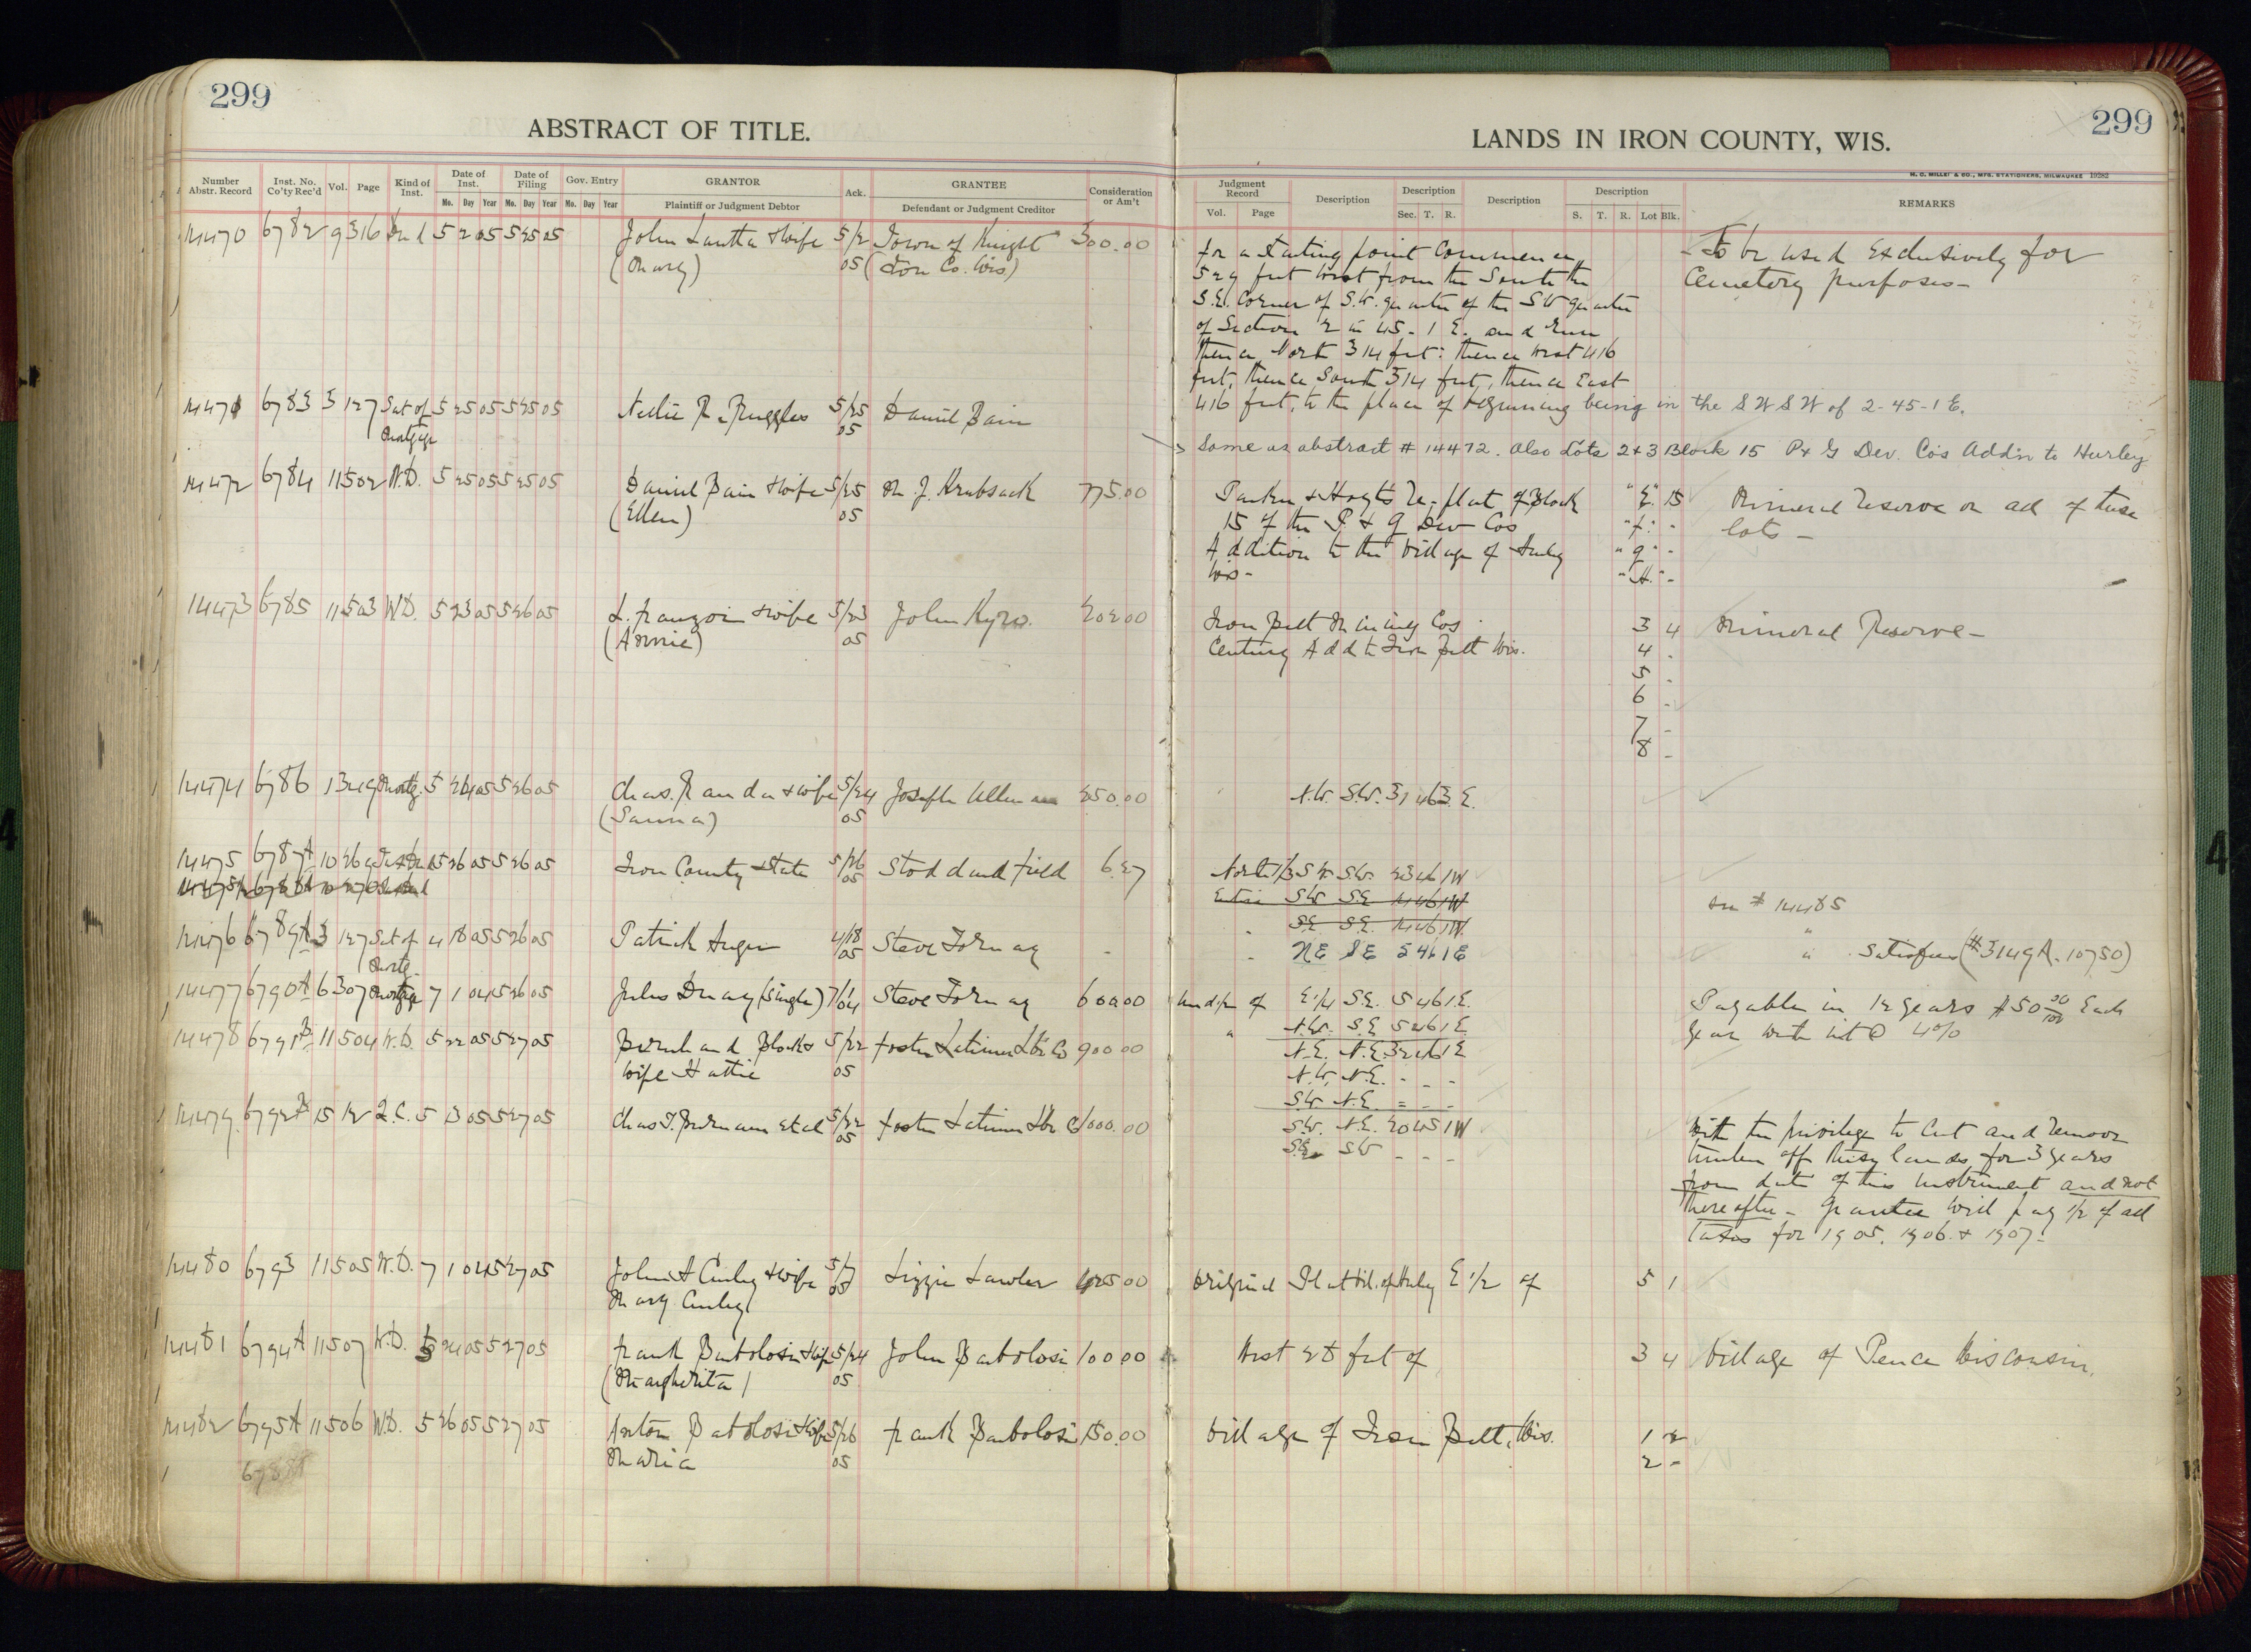 299
ABSTRACT OF TITLE.
Number Abstr. Record
Inst. No. Co'ty Rec'd
Vol.
Page
Kind of Inst.
Date of Inst.
Date of Filing
Gov. Entry
GRANTOR
Ack.
GRANTEE
Consideration or Am't
Mo. Day Year Mo. Day Year Mo. Day Year
Plaintiff or Judgment Debtor
Defendant or Judgment Creditor
14470 6782 9 316 Deed 5 2 05 5 25 05 John Lautta & wife 5/2 Town of Knight 300.00
(Mary) 05 (Iron Co. Wis)
14471 6783 3 127 Sat of 5 25 05 5 25 05 Nellie R. Ruggles 5/25 Daniel Bain
Mortgage 05
14472 6784 11 502 W.D. 5 25 05 5 25 05 Daniel Bain & wife 5/25 M. J. Krubsack 775.00
(Ellen) 05
14473 6785 11 503 W.D. 5 23 05 5 26 05 L. Franzoi & wife 5/23 John Kyro. 202 00
(Annie) 05
14474 6786 13 49 Mortg. 5 24 05 5 26 05 Chas. Randa & wife 5/24 Joseph Allman 250.00
(Sanna) 05
14475 6787A 10 26 Tax Deed 5 26 05 5 26 05 Iron County & State 5/26 Stoddard Field 6.27
05
14476 6789A 3 127 Sat of 4 18 05 5 26 05 Patrick Auger 4/18 Steve Tornay -
Mortg. 05
14477 6790A 6 307 Mortgage 7 1 04 5 26 05 Jules Druay (single) 7/1 04 Steve Tornay 600.00
14478 6791A 11 504 W.D. 5 22 05 5 27 05 Bernhard Block & 5/22 Foster Latimer Lbr Co 900 00
wife Hattie 05
14479 6792A 15 12 Q.C. 5 13 05 5 27 05 Chas T. Burnam et al 5/22 Foster Latimer Lbr Co 1000.00
05
14480 6793 11 505 W.D. 7 1 04 5 27 05 John A Curley & wife 5/7 Lizzie Lawler 425 00
Mary Curley 05
14481 6794A 11 507 W.D. 5 24 05 5 27 05 Frank Bartolosi & wife 5/24 John Bartolosi 100 00
(Margherita) 05
14482 6795A 11 506 W.D. 5 26 05 5 27 05 Anton Bartolosi & wife 5/26 Frank Bartolosi 150.00
Maria 05
299
LANDS IN IRON COUNTY, WIS.
H. C. MILLER & CO., MFG. STATIONERS, MILWAUKEE 19282
Judgment Record
Description
Description
Description
Description
REMARKS
Vol. Page
Sec. T. R.
S. T. R. Lot Blk.
For a starting point commence
529 feet West from the South the
S.E. Corner of S.W. quarter of the SW quarter
of Section 2 in 45 - 1 E. and run
thence North 314 feet; thence West 416
feet, thence South 314 feet, thence East
416 feet, to the place of beginning being in the S W S W of 2-45-1 E.
- To be used exclusively for
Cemetery purposes -
Same as abstract # 14472. also Lots 2 & 3 Block 15 P & G Dev. Co's Add'n to Hurley
Parker & Hoyt's Re-plat of Block "E" 15
15 of the P. & G Dev Cos "F" -
Addition to the Village of Hurley "G" -
Wis - "H" -
Mineral reserve on all of these
lots -
Iron Belt Mining Cos 3 4 Mineral Reserve -
Century Add to Iron Belt Wis. 4 -
5 -
6 -
7 -
8 -
N.W. S.W. 31 46 3 E.
North 1/3 S W SW. 23 46 1W
Entire SW SE 14 46 1W see # 14485
- SE SE 14 46 1W "
- NE SE 5 46 1E " Satisfies (#3149A - 10750)
Und 1/2 of E 1/4 S.E. 5 46 1 E.
" N.W. S.E 5 46 1 E
Payable in 12 years $50 00/100 Each
year with int @ 4%
N.E. N.E. 32 46 1 E
N.W. N.E. - - -
SW N.E. = - -
S.W. N.E. 20 45 1W
S.E. SW - - -
With the privilege to cut and remove
timber off these lands for 3 years
from date of this instrument and not
thereafter - Grantee will pay 1/2 of all
Taxes for 1905. 1906. & 1907 -
Original Plat Vil. of Hurley E 1/2 of 5 1
West 25 feet of 3 4 Village of Pence Wisconsin.
Village of Iron Belt, Wis. 1 2
2 -